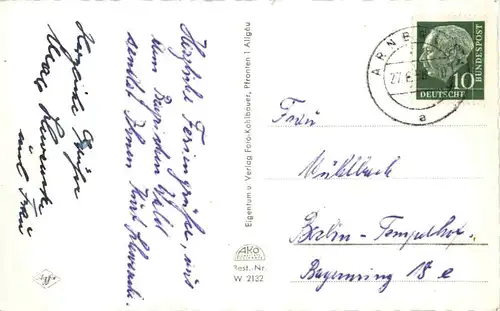 Herzliche Feriengrüße, aus
dem Bayrischen Wald
sendet Ihnen Kurt
Herzliche Grüße
und Frau
Eigentum u. Verlag Foto-Kohlbauer, Pfronten i. Allgäu
AKO
Best.-Nr.
W 2132
ARNB
27.8
a
10
DEUTSCHE
BUNDESPOST
Frau
Mühlbach
Berlin-Tempelhof
Bayernring 18 e